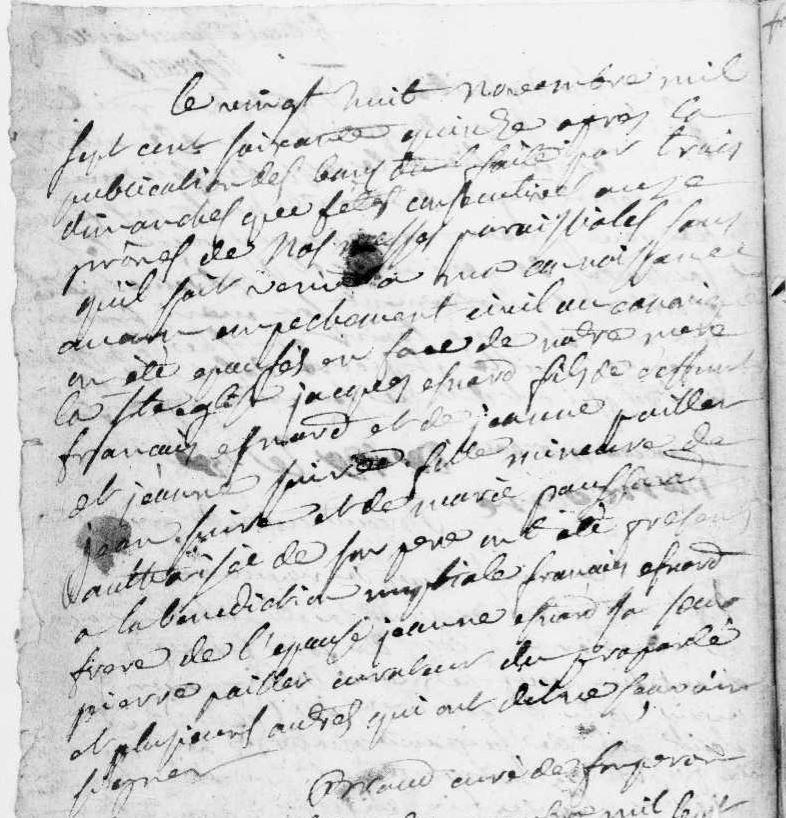 le vingt huit novembre mil
sept cent soixante quinze apres la
publication des bans du faite par trois
dimanches que fêtes consecutives aux
prônes de nos messes paroissiales sans
qu'il soit venu a ma connoissance
aucun empechement civil ou canonique
on été epousés en face de notre mere
la Ste eglise jacques esnard fils de deffunt
francois esnard et de jeanne pailler
et jeanne suire fille mineure de
jean suire et de marie
authorisée de son pere ont été presents
a la benediction nuptiale francois esnard
frere de l'epousé jeanne esnard sa soeur
pierre pailler curateur du proparlé
et plusieurs autres qui ont dit ne scavoir
signer
curé de
mil sept